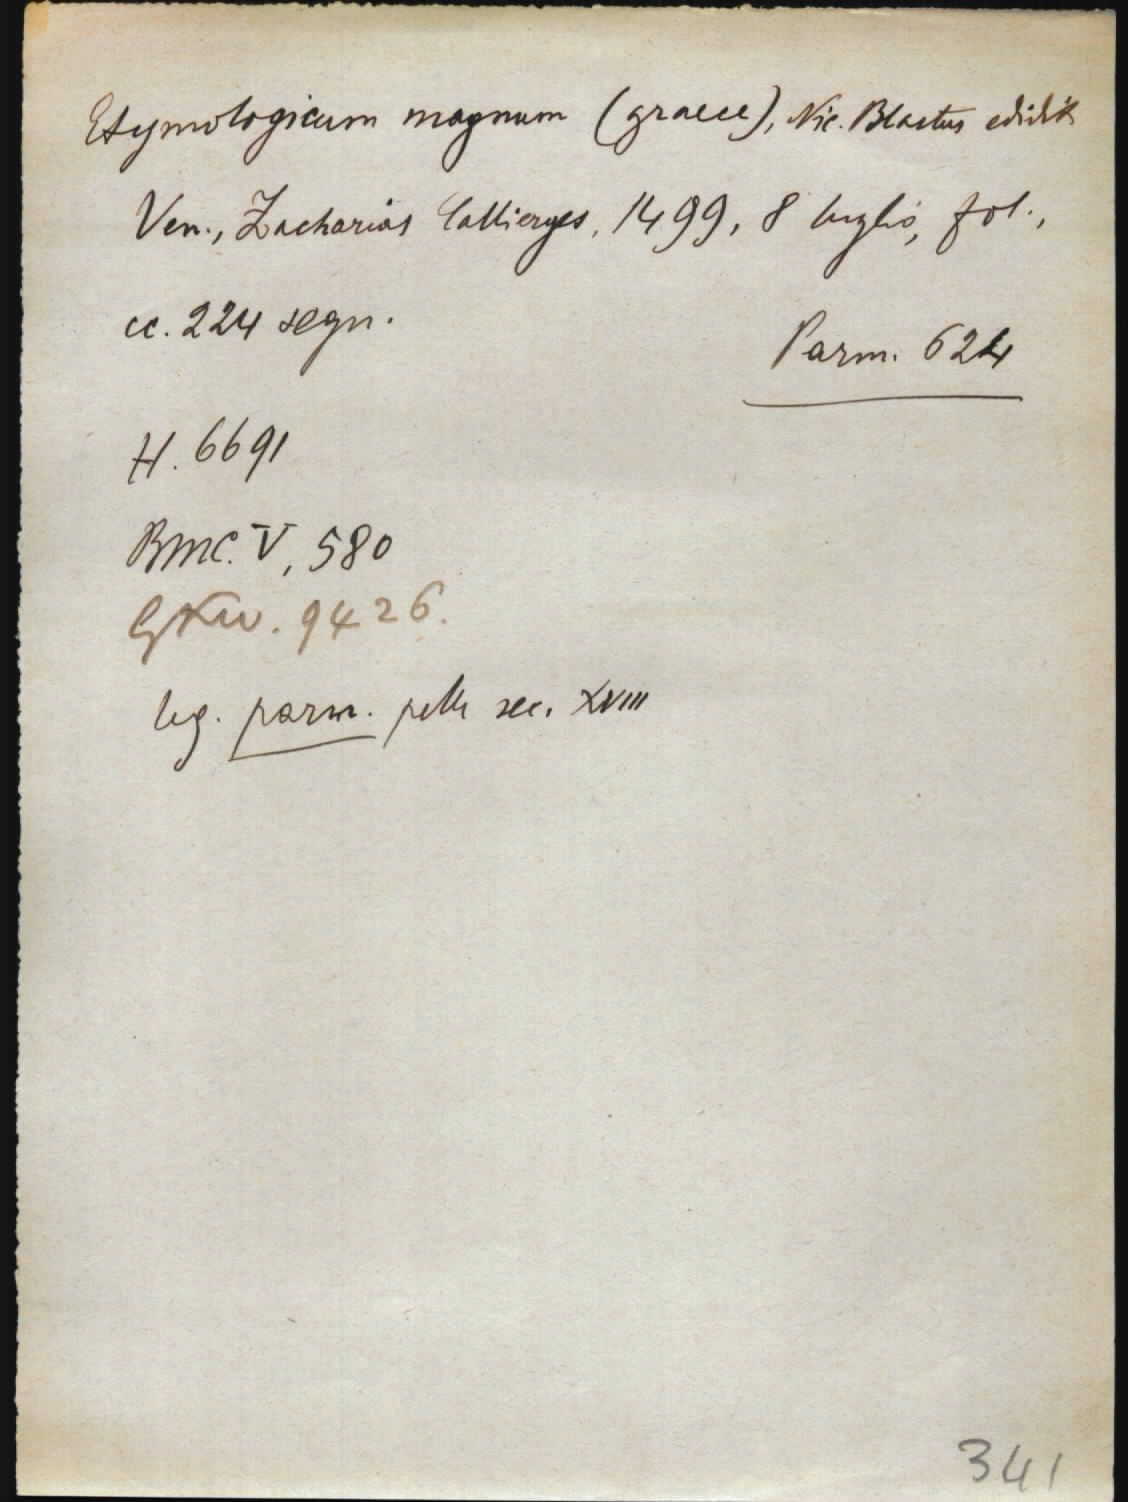 Etymologicum magnum (graece), Nic. Blastus edidit
Ven., Zacharias Callierges, 1499, 8 luglio, fol.,
cc. 224 segn.
Parm. 624
H. 6691
BMC. V, 580
GKW. 9426.
leg. parm. pelle sec. XVIII
341